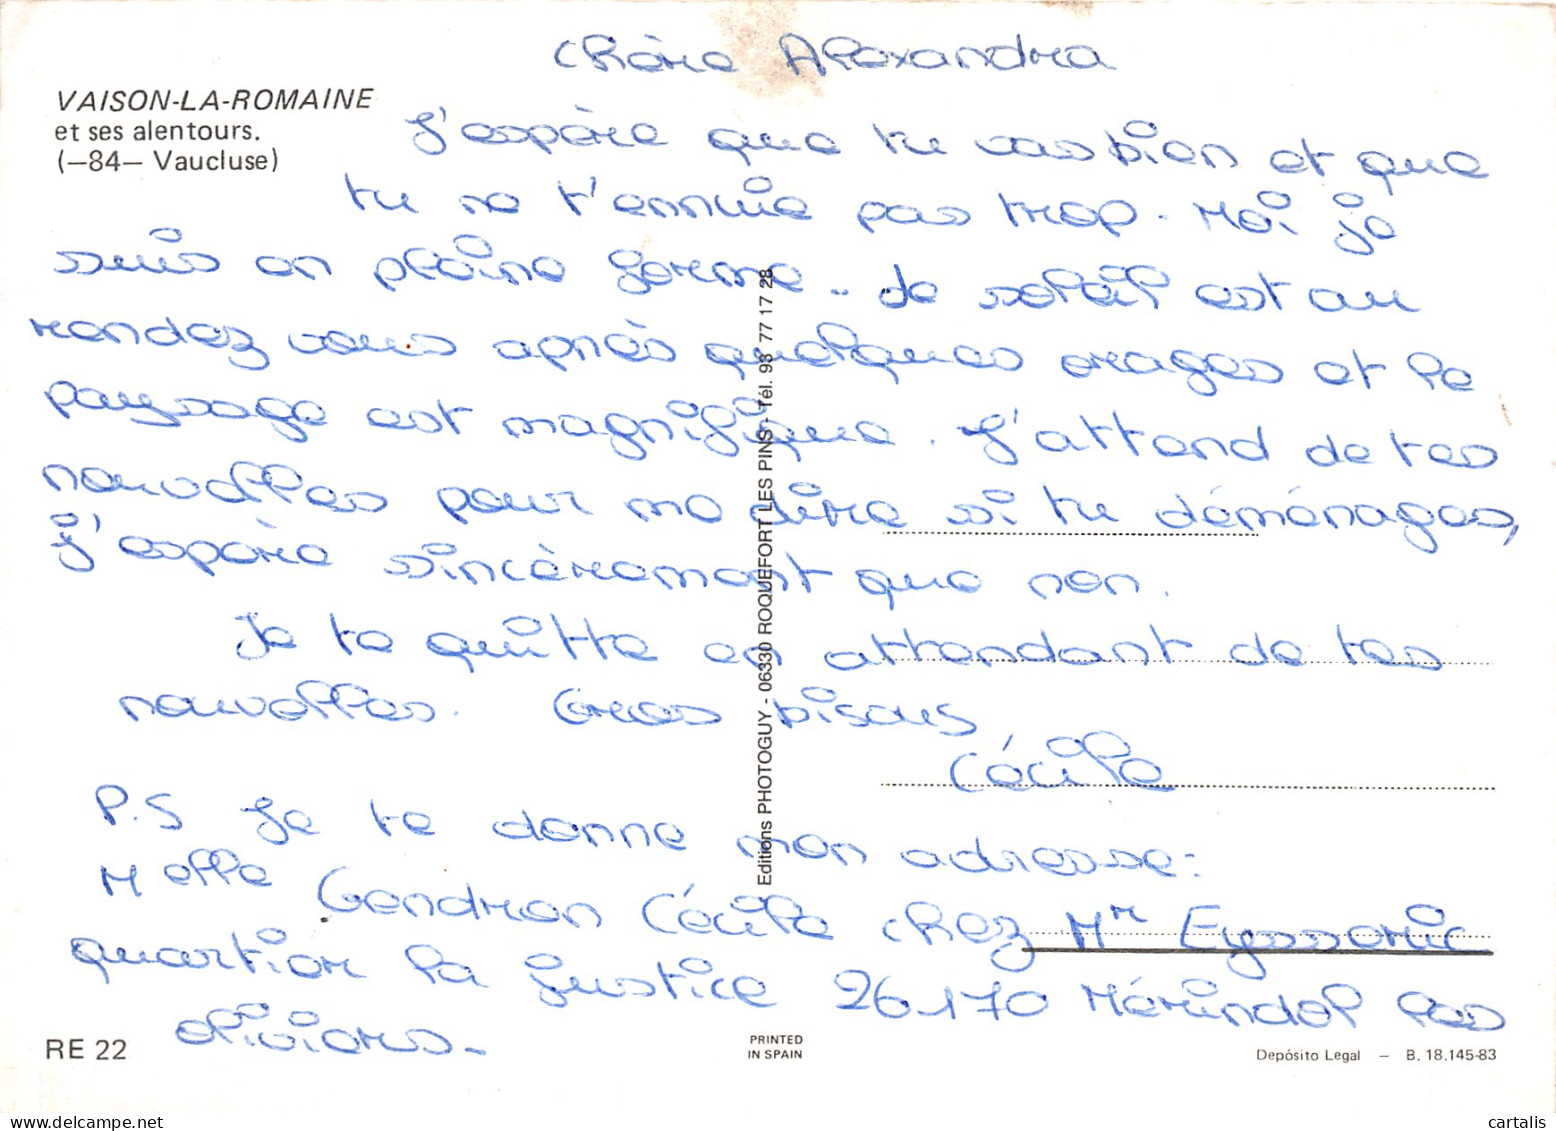 VAISON-LA-ROMAINE
et ses alentours.
(—84— Vaucluse)
Chère Alexandra
J'espère que tu vas bien et que
tu ne t'ennuie pas trop. Moi je
suis en pleine forme.. Le soleil est au
rendez vous après quelques orages et le
paysage est magnifique. J'attend de tes
nouvelles pour me dire si tu déménages,
j'espère sincèrement que non.
Je te quitte en attendant de tes
nouvelles. Gros bisous
Cécile
P.S Je te donne mon adresse:
Melle Gendron Cécile chez Mr Eysseric
quartier la justice 26.170 Mérindol les
oliviers.
Editions PHOTOGUY - 06330 ROQUEFORT LES PINS - Tél. 93 77 17 28
RE 22
PRINTED
IN SPAIN
Depósito Legal — B. 18.145-83
cartalis